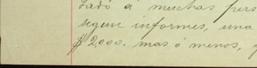 dado á muchas pers
seguir informes, una
$2000. mas ó menos,